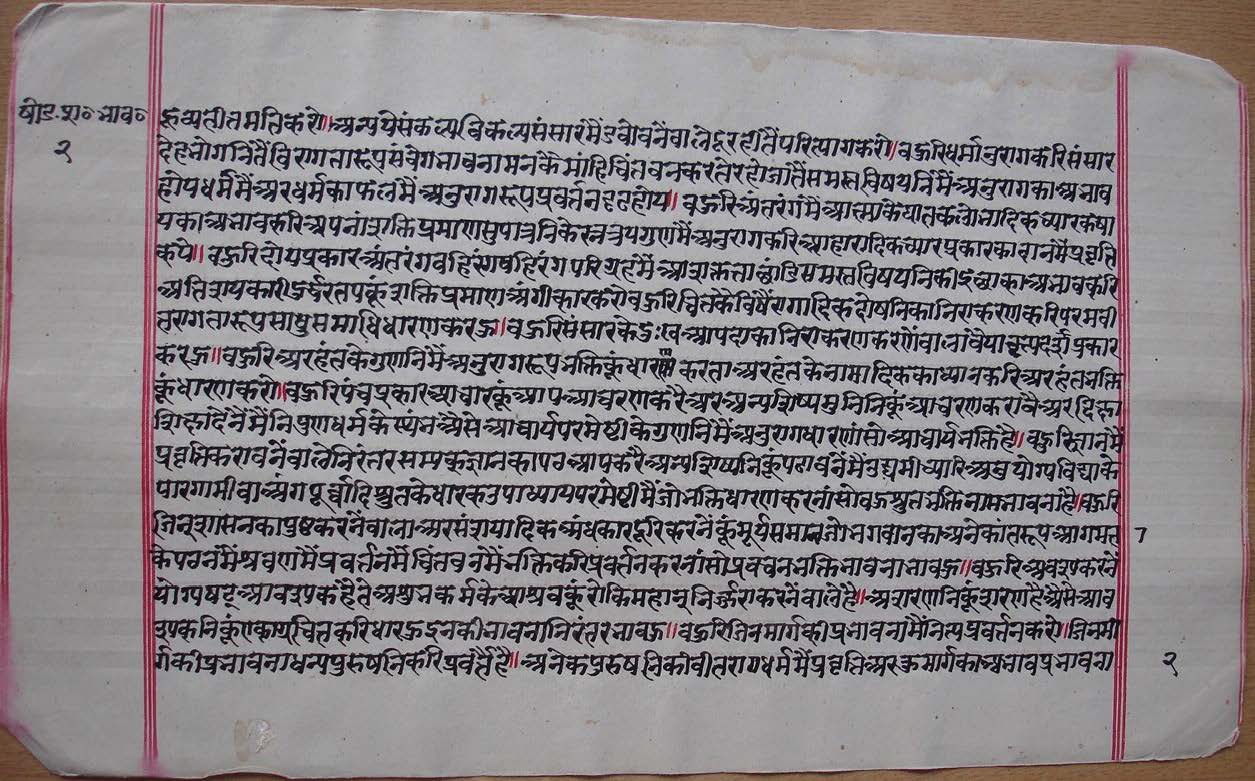 षोड.श॰भाव॰
२
हूव्यतीतमतिकरो॥अन्ययेसंकल्पविकल्पसंसारमैंडवोवनैंवालेदूरहीतैंपरित्यागकरो॥बऊरिधर्मानुरागकरिसंसार
देहभोगनितैंविरागतारूपसंवेगभावनामनकेमांहिचिंतवनकरतेरहोजातैंसमस्तविषयनिमैंअनुरागकाअभाव
होयधर्ममैंअरधर्मकाफलमैंअनुरागरूपप्रवर्तनदृढहोय॥बऊरिअंतरंगमैंआत्माकेघातकलोभादिकच्यारकषा
यकाअभावकरिअपनांशक्तिप्रमाणसुपात्रनिकेरत्नत्रयगुणमैंअनुरागकरिआहारादिकच्यारप्रकारकादानमैंप्रवृत्ति
करो॥बऊरिदोयप्रकारअंतरंगवहिरंगपरिग्रहमैंआशक्तताछांडिसमस्तविषयनिकीइच्छाकाअभावकरि
अतिशयकारीदुर्द्धरतपकूंशक्तिप्रमाणअंगीकारकरोबऊरिचित्तकेविषैंरागादिकदोषनिकानिराकरणकरिपरमवी
तरागतारूपसाधुसमाधिधारणकरऊ॥बऊरिसंसारकेदुःखआपदाकानिराकरणकरणेंवालावैयावृत्यदशप्रकार
करऊ॥बऊरिअरहंतकेगुणनिमैंअनुरागरूपभक्तिकूंधारणकरताअरहंतकेनामादिककाध्यानकरिअरहंतभक्ति
कूंधारणकरो॥बऊरिपंचप्रकारआचारकूंआपआचरणकरैअरअन्यशिष्यमुनिनिकूंआचरणकरावैअरदिक्षा
शिक्षादेनेंमैंनिपुणधर्मकेस्थंभअैसेआचार्यपरमेष्टीकेगुणनिमैंअनुरागधारणांसोआचार्यभक्तिहै॥बऊरिज्ञानमैं
प्रवृत्तिकरावनेंवालेनिरंतरसम्यकज्ञानकापठनआपकरैअन्यशिष्यनिकूंपढावनेंमैंउद्यमीच्यारिअनुयोगविद्याके
पारगामीवाअंगपूर्वादिश्रुतकेधारकउपाध्यायपरमेष्टीमैंजोभक्तिधारणकरनांसोबऊश्रुतभक्तिनामभावनाहै॥बऊरि
जिनशासनकापुष्टकरनेंवालाअरसंशयादिकअंधकारदूरिकरनेंकूंसूर्यसमानजोभगवानकाअनेकांतरूपआगमत
केपठनमैंश्रवणमैंप्रवर्तनमैंचिंतवनमैंभक्तिकरिप्रवर्तनकरनांसोप्रवचनभक्तिभावनाभावऊ॥बऊरिअवश्यकरनें
योग्यषट्आवश्यकहैतेअशुभकर्मकेआश्रवकूंरोकिमहान्निर्ज्जराकरनेंवालेहै॥अशरणनिकूंशरणहैअैसेआव
श्यकनिकूंएकाग्रचित्तकरिधारऊइनकीभावनानिरंतरभावऊ॥बऊरिजिनमार्गकीप्रभावनामैंनित्यप्रवर्तनकरो॥जिनमा
र्गकीप्रभावनाधन्यपुरुषनिकरिप्रवर्तैहै॥अनेकपुरुषनिकीवीतरागधर्ममैंप्रवृत्तिअरकुमार्गकाअभावप्रभावना
२